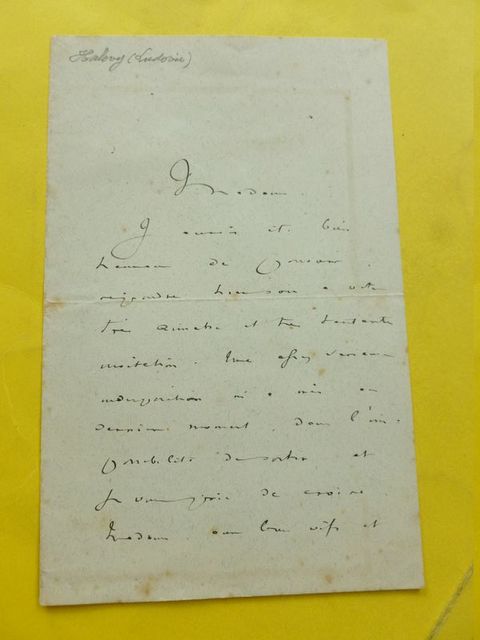 Halévy (Ludovic)
Madame,
J'aurais été bien
heureux de pouvoir
répondre hier soir à votre
très aimable et très tentante
invitation. Une assez sérieuse
indisposition m'a mis au
dernier moment, dans l'im-
possibilité de sortir et
je vous prie de croire,
Madame, à mes bien vifs et